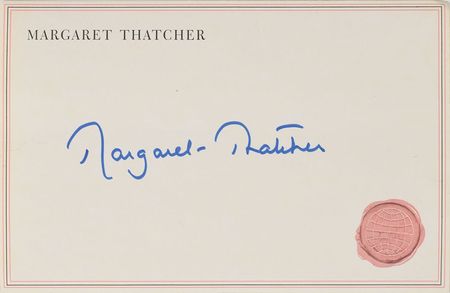 MARGARET THATCHER
Margaret Thatcher